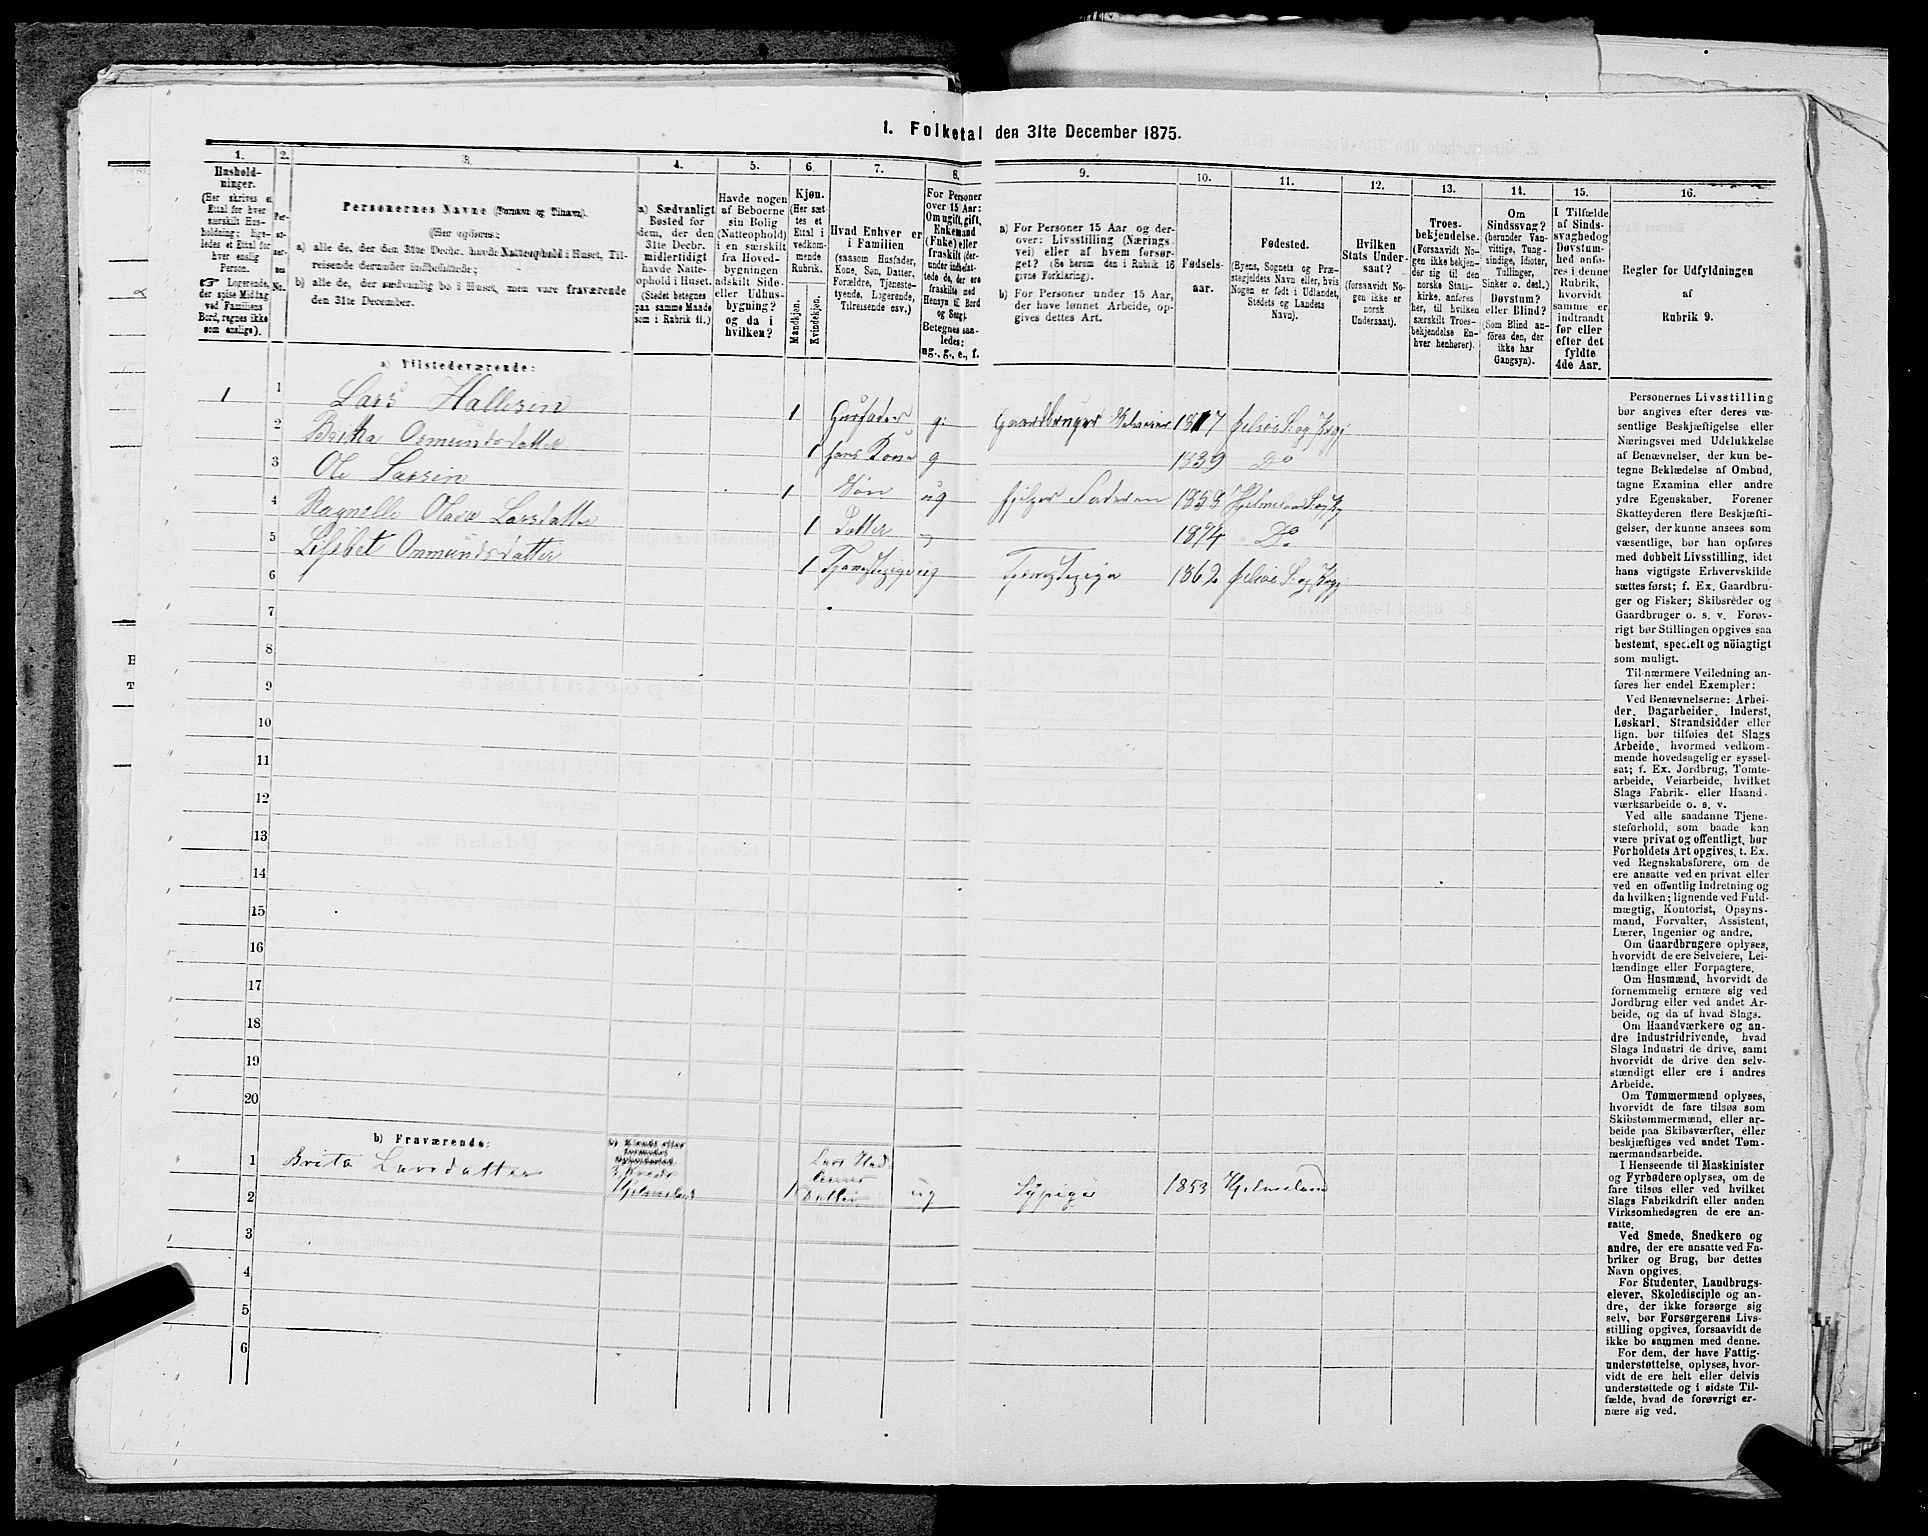 1. Folketal den 31te December 1875.
1. 2. 3. 4. 5. 6. 7. 8. 9. 10. 11. 12. 13. 14. 15. 16.
Hushold-
ninger.
(Her skrives et
Ettal for hver
særskilt Hus-
holdning; lige-
ledes et Ettal for
hver enslig
Person.
☞ Logerende,
der spise Middag
ved Familiens
Bord, regnes ikke
som enslige).
Per-
so-
ner-
nes
No.
Personernes Navne (Fornavn og Tilnavn).
(Her opføres:
a) alle de, der den 31te Decbr. havde Natteophold i Huset, Til-
reisende derunder indbefattede;
b) alle de, der sædvanlig bo i Huset, men vare fraværende
den 31te December.
a) Sædvanligt
Bosted for
dem, der den
31te Decbr.
midlertidigt
havde Natte-
ophold i Huset.
(Stedet betegnes
paa samme Maade
som i Rubrik 11.)
Havde nogen
af Beboerne
sin Bolig
(Natteophold)
i en særskilt
fra Hoved-
bygningen
adskilt Side-
eller Udhus-
bygning?
og da i
hvilken?
Kjøn.
(Her sæt
tes et
Ettal i
vedkom-
mende
Rubrik.
Mandkjøn.
Kvindekjøn.
Hvad Enhver er
i Familien
(saasom Husfader,
Kone, Søn, Datter,
Forældre, Tjeneste-
tyende, Logerende,
Tilreisende osv.)
For Personer
over 15 Aar:
Om ugift, gift,
Enkemand
(Enke) eller
fraskilt (der-
under indbefat-
tede de, der ere
fraskilte med
Hensyn til Bord
og Seng).
Betegnes saa-
ledes:
ug., g., e., f.
a) For Personer 15 Aar og der-
over: Livsstilling (Nærings-
vei) eller af hvem forsør-
get? (Se herom den i Rubrik 16
givne Forklaring).
b) For Personer under 15 Aar,
der have lønnet Arbeide, op-
gives dettes Art.
Fødsels-
aar.
Fødested.
(Byens, Sognets og Præ-
stegjeldets Navn eller, hvis
Nogen er født i Udlandet,
Stedets og Landets
Navn).
Hvilken
Stats Under-
saat?
(forsaavidt No-
gen ikke er
norsk
Undersaat).
Troes-
bekjendelse.
(Forsaavidt No-
gen ikke bekjen-
der sig til den
norske Stats-
kirke, anføres
her, til hvilken
særskilt Troes-
bekjendelse En-
hver henhører).
Om
Sindssvag?
(herunder Van-
vittige, Tung-
sindige, Idioter,
Tullinger,
Sinker o. desl.)
Døvstum?
eller Blind?
(Som Blind an-
føres den, der
ikke har
Gangsyn).
I Tilfælde
af Sinds-
svaghed og
Døvstum-
hed anfø-
res i denne
Rubrik,
hvorvidt
samme er
indtraadt
før eller
efter det
fyldte
4de Aar.
Regler for Udfyldningen
af
Rubrik 9.
a) Tilstedeværende:
1 1 Lars Hallesen 1 Husfader g. Gaardbruger Selveier 1817
2 Brita Osmundsdatter 1 hans Kone g 1839 Do
3 Ole Larsen 1 Søn ug hjelper Faderen 1858
4 Larsdatter 1 Datter 1874 Do
5 Lisbet Osmundsdatter 1 ug 1862
6
7
8
9
10
11
12
13
14
15
16
17
18
19
20
b) Fraværende: b) Kjendt eller
formodet
Opholdssted.
1 Brita Larsdatter Hjelmeland 1 Lars Datter ug Sypige 1853 Hjelmeland
2
3
4
5
6
Personernes Livsstilling
bør angives efter deres væ-
sentlige Beskjæftigelse eller
Næringsvei med Udelukkelse
af Benævnelser, der kun be-
tegne Beklædelse af Ombud,
tagne Examina eller andre
ydre Egenskaber. Forener
Skatteyderen flere Beskjæfti-
gelser, der kunne ansees som
væsentlige, bør han opføres
med dobbelt Livsstilling, idet
hans vigtigste Erhvervskilde
sættes først; f. Ex. Gaardbru-
ger og Fisker; Skibsreder og
Gaardbruger o. s. v. Forøv-
rigt bør Stillingen opgives saa
bestemt, specielt og nöiagtigt
som muligt.
Til nærmere Veiledning an-
føres her endel Exempler:
Ved Benævnelserne: Arbei-
der, Dagarbeider, Inderst,
Løskarl, Strandsidder eller
lign. bør tilføies det Slags
Arbeide, hvormed vedkom-
mende hovedsagelig er syssel-
sat; f. Ex. Jordbrug, Tomte-
arbeide, Veiarbeide, hvilket
Slags Fabrik- eller Haand-
værksarbeide o. s. v.
Ved alle saadanne Tjene-
steforhold, som baade kan
være privat og offentligt, bør
Forholdets Art opgives, t. Ex.
ved Regnskabsførere, om de
ere ansatte ved en privat eller
ved en offentlig Indretning og
da hvilken; lignende ved Fuld-
mægtig, Kontorist, Opsyns-
mand, Forvalter, Assistent,
Lærer, Ingeniør og andre.
Om Gaardbrugere oplyses,
hvorvidt de ere Selveiere, Lei-
lændinge eller Forpagtere.
Om Husmænd, hvorvidt de
fornemmelig ernære sig ved
Jordbrug eller ved andet Ar-
beide, og da af hvad Slags.
Om Haandværkere og an-
dre Industridrivende, hvad
Slags Industri de drive, samt
hvorvidt de drive den selv-
stændigt eller ere i andres
Arbeide.
Om Tømmermænd oplyses,
hvorvidt de fare tilsøs som
Skibstømmermænd, eller ar-
beide paa Skibsværfter, eller
beskjæftiges ved andet Tøm-
mermandsarbeide.
I Henseende til Maskinister
og Fyrbødere oplyses, om de
fare tilsøs eller ved hvilket
Slags Fabrikdrift eller anden
Virksomhedsgren de ere an-
satte.
Ved Smede, Snedkere og
andre, der ere ansatte ved Fa-
briker og Brug, bør dettes
Navn opgives.
For Studenter, Landbrugs-
elever, Skoledisciple og an-
dre, der ikke forsørge sig
selv, bør Forsørgerens Livs-
stilling opgives, forsaavidt de
ikke bo sammen med denne.
For dem, der have Fattig-
understøttelse, oplyses, hvor-
vidt de ere helt eller delvis
understøttede og i sidste Til-
fælde, hvad de forøvrigt er-
nære sig ved.